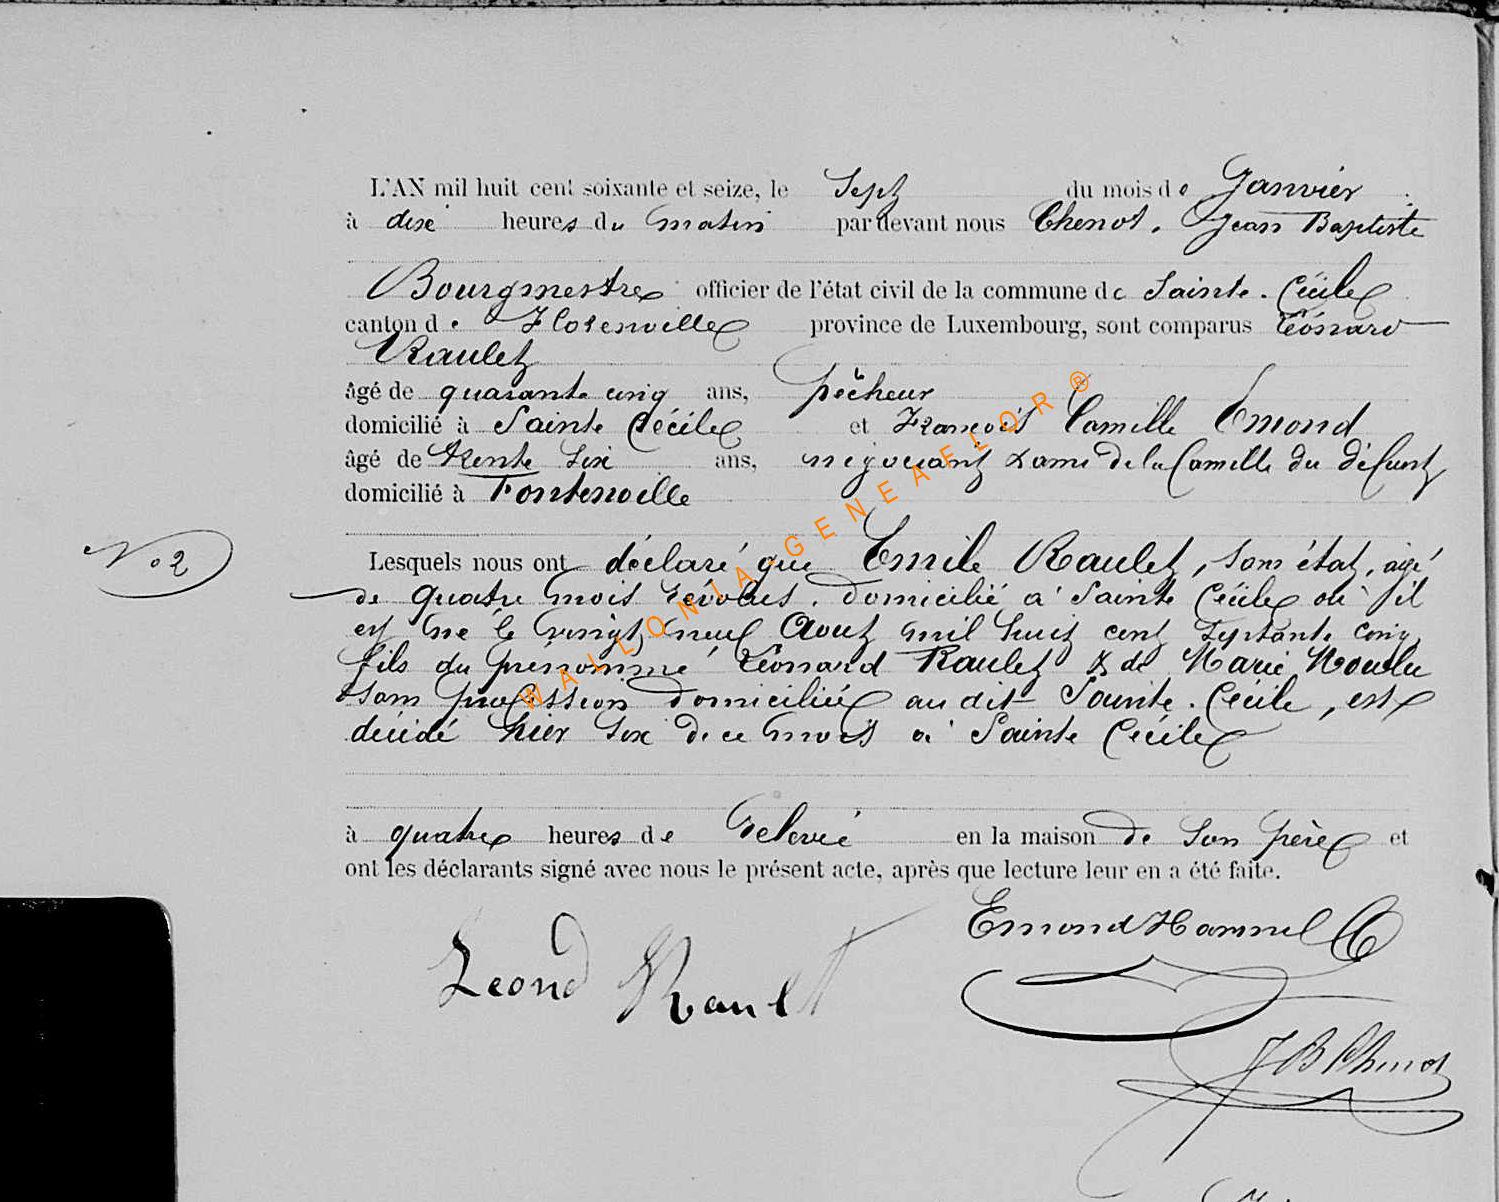 L'AN mil huit cent soixante et seize, le Sept du mois de Janvier
à dix heures du matin par devant nous Chenot, Jean Baptiste
Bourgmestre officier de l'état civil de la commune de Sainte-Cécile
canton de Florenville province de Luxembourg, sont comparus Léonard
Raulet
âgé de quarante cinq ans, pêcheur
domicilié à Sainte Cécile et François Camille Emond
âgé de trente six ans, négociant & ami de la famille du défunt
domicilié à Fontenoille
N° 2
Lesquels nous ont déclaré que Emile Raulet, sans état, agé
de quatre mois révolus, domicilié à Sainte Cécile où il
est né le vingt neuf Aout mil huit cent septante cinq
fils du prénommé Léonard Raulet & de Marie
sans profession domiciliée au dit Sainte-Cécile, est
décédé hier six de ce mois à Sainte Cécile
à quatre heures de relevée en la maison de son père et
ont les déclarants signé avec nous le présent acte, après que lecture leur en a été faite.
Emond Hamel
Leond Rault
JB Chenot
WALLONIA-GENEAFLOR®